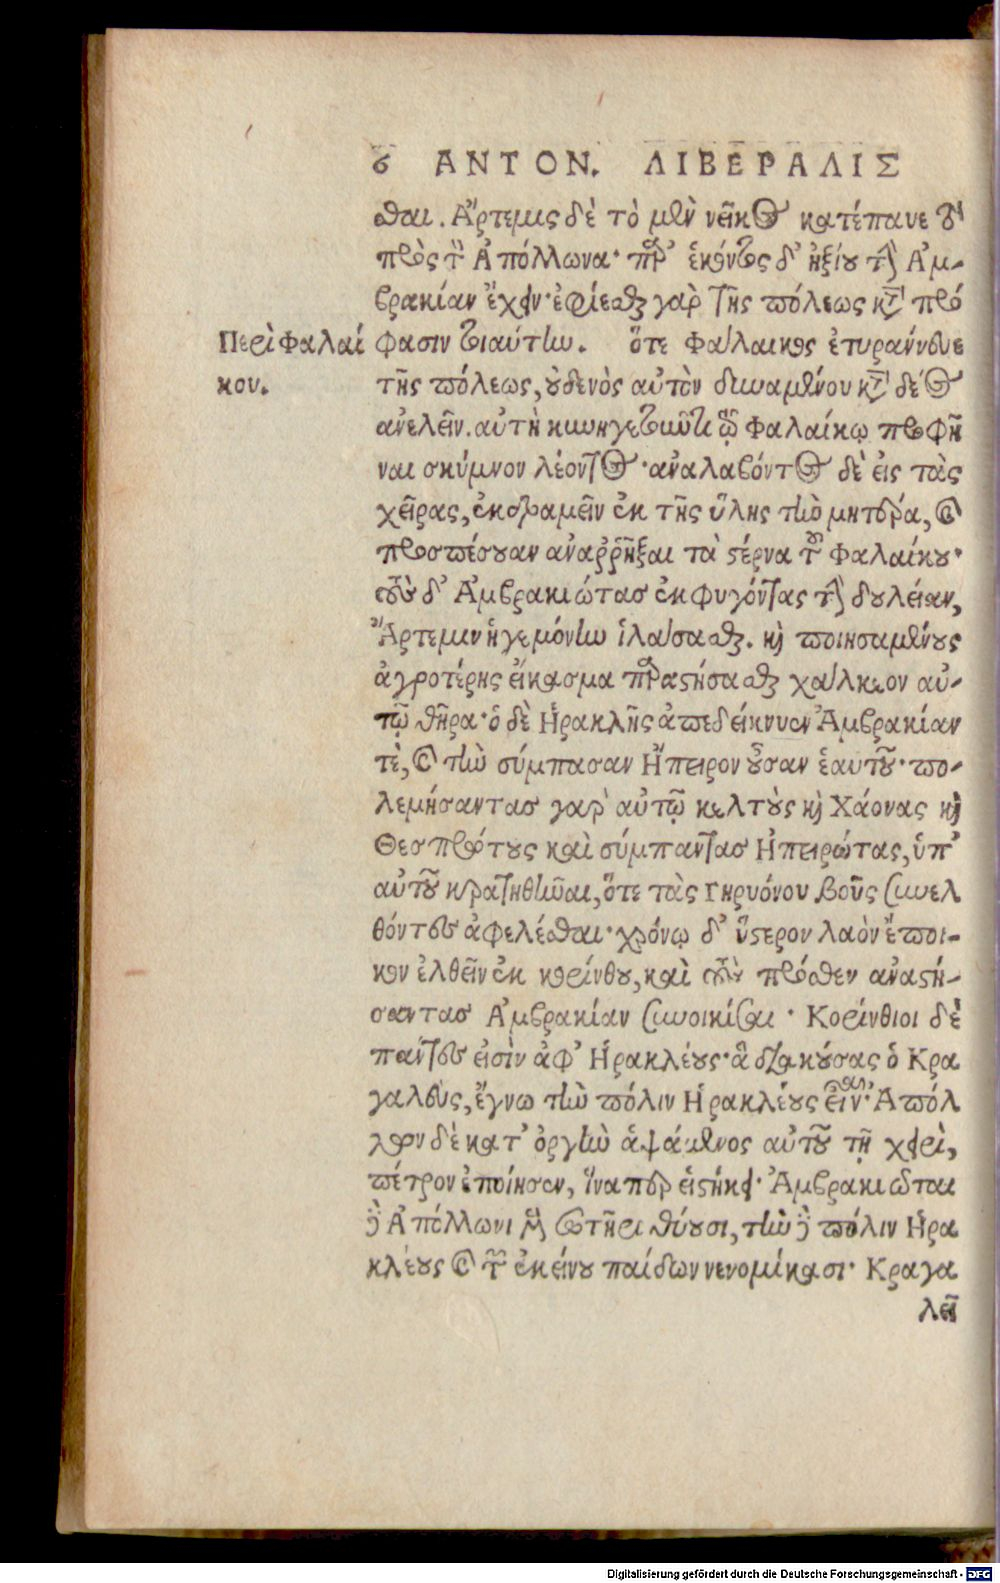 6 ΑΝΤΟΝ. ΛΙΒΕΡΑΛΙΣ
σθαι. Ἄρτεμις δὲ τὸ μὲν νεῖκος κατέπαυε τὸ
πρὸς τὸν Ἀπόλλωνα· παρ' ἑκόντος δ' ἠξίου τὴν Ἀμ-
βρακίαν ἔχειν· ἐφίεσθαι γὰρ τῆς πόλεως κατὰ πρό
Περὶ Φαλαί
κου.
φασιν τοιαύτην. ὅτε Φάλαικος ἐτυράννευε
τῆς πόλεως, οὐδενὸς αὐτὸν δυναμένου κατὰ δέος
ἀνελεῖν. αὐτὴ κυνηγετοῦντι τῷ Φαλαίκῳ προφῆ
ναι σκύμνον λέοντος· ἀναλαβόντος δὲ εἰς τὰς
χεῖρας, ἐκδραμεῖν ἐκ τῆς ὕλης τὴν μητέρα, καὶ
προσπέσουσαν ἀναῤῥῆξαι τὰ στέρνα τοῦ Φαλαίκου·
τοὺς δ' Ἀμβρακιώτας ἐκφυγόντας τὴν δουλείαν,
Ἄρτεμιν ἡγεμόνην ἱλάσασθαι. καὶ ποιησαμένους
ἀγροτέρης εἴκασμα παραστήσασθαι χάλκεον αὐ-
τῷ θῆρα· ὁ δὲ Ἡρακλῆς ἀπεδείκνυεν Ἀμβρακίαν
τὲ, καὶ τὴν σύμπασαν Ἤπειρον οὖσαν ἑαυτοῦ· πο-
λεμήσαντας γὰρ αὐτῷ κελτοὺς καὶ Χάονας καὶ
Θεσπρότους καὶ σύμπαντας Ἠπειρώτας, ὑπ'
αὐτοῦ κρατηθῆναι, ὅτε τὰς Γηρυόνου βοῦς συνελ
θόντες ἀφελέσθαι· χρόνῳ δ' ὕστερον λαὸν ἔποι-
κον ἐλθεῖν ἐκ κορίνθου, καὶ τοὺς πρόσθεν ἀναστή-
σαντας Ἀμβρακίαν συνοικίσαι · Κορίνθιοι δὲ
πάντες εἰσὶν ἀφ' Ἡρακλέους· ἃ διακούσας ὁ Κρα
γαλεὺς, ἔγνω τὴν πόλιν Ἡρακλέους εἶναι· Ἀπόλ
λων δὲ κατ' ὀργὴν ἁψάμενος αὐτοῦ τῇ χειρὶ,
πέτρον ἐποίησεν, ἵναπερ εἱστήκει· Ἀμβρακιῶται
δὲ Ἀπόλλωνι μὲν σωτῆρι θύουσι, τὴν δὲ πόλιν Ἡρα
κλέους καὶ τῶν ἐκείνου παίδων νενομίκασι· Κραγα
λεῖ
Digitalisierung gefördert durch die Deutsche Forschungsgemeinschaft - DFG